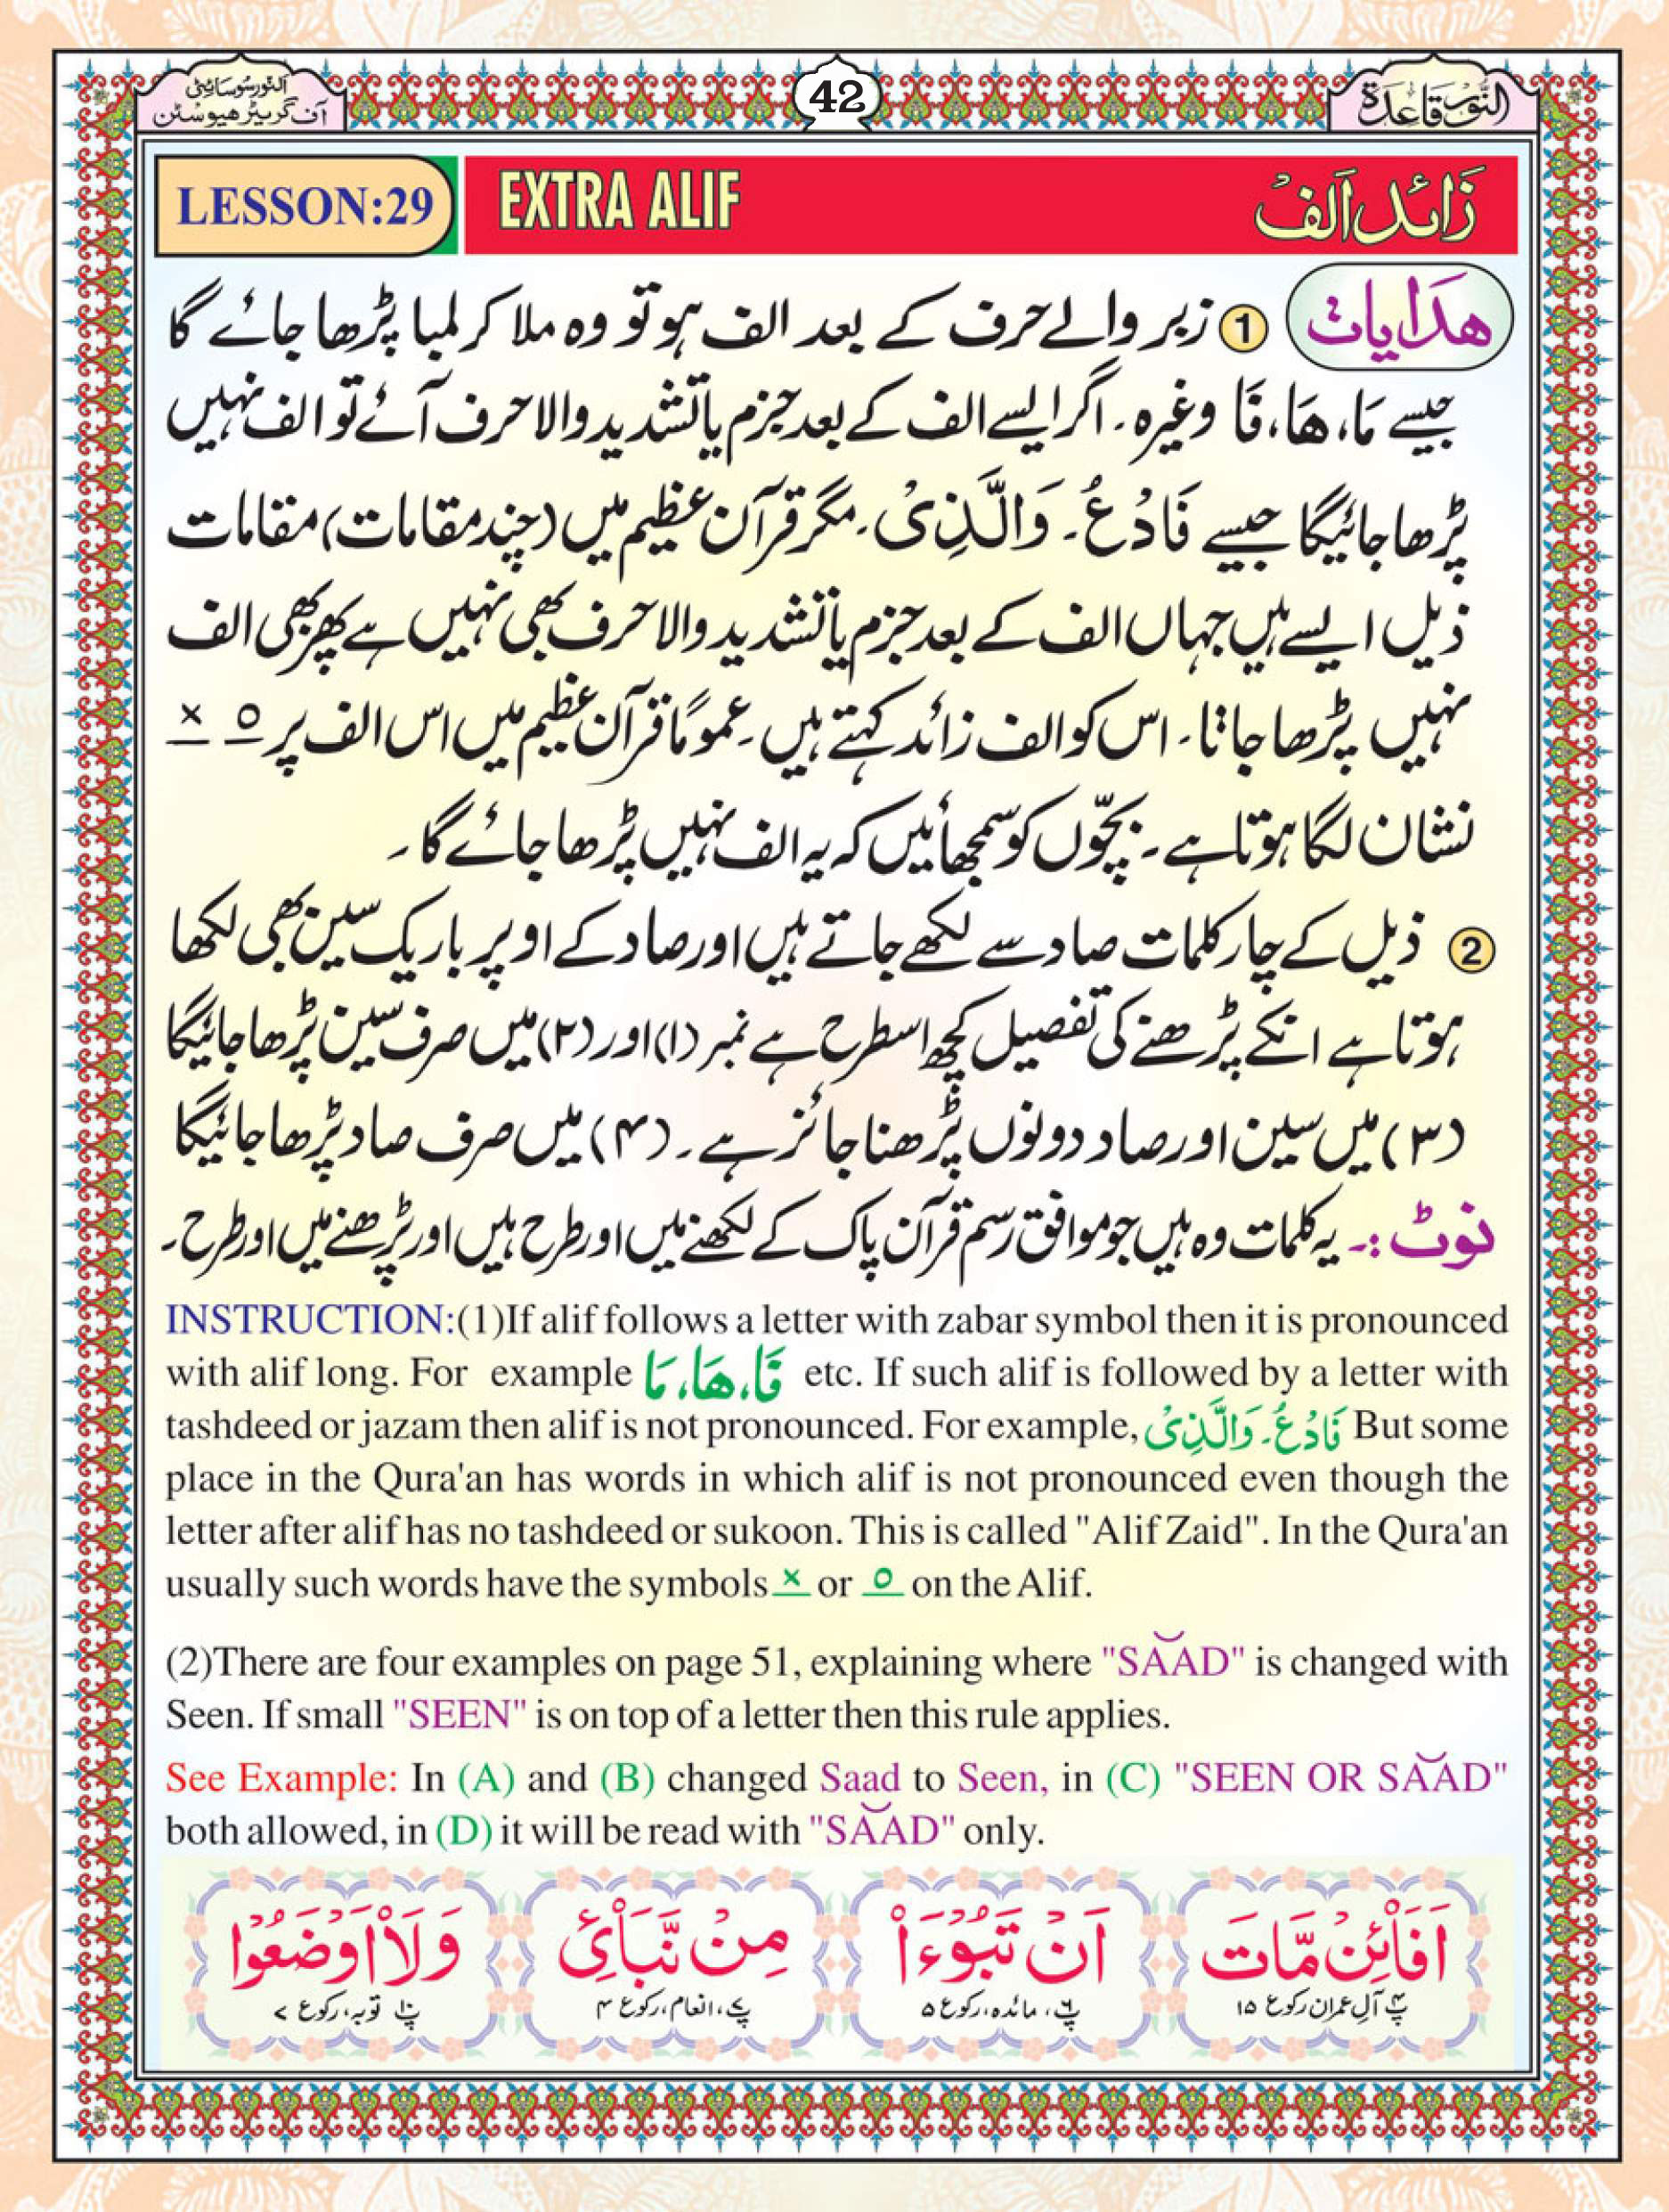 النور سوسائٹی
آف گریٹر ھیوسٹن
42
النُّور قاعدة
LESSON:29
EXTRA ALIF
زَائد اَلف
هدایات
① زبر والے حرف کے بعد الف ہو تو وہ ملا کر لمبا پڑھا جائے گا
جیسے مَا، هَا، فَا وغیرہ۔ اگر ایسے الف کے بعد جزم یا تشدید والا حرف آئے تو الف نہیں
پڑھا جائیگا جیسے فَادْعُ۔ وَالَّذِیْ۔ مگر قرآن عظیم میں (چند مقامات) مقامات
ذیل ایسے ہیں جہاں الف کے بعد جزم یا تشدید والا حرف بھی نہیں ہے پھر بھی الف
نہیں پڑھا جاتا۔ اس کو الف زائد کہتے ہیں۔ عموماً قرآن عظیم میں اس الف پر o ×
نشان لگا ہوتا ہے۔ بچّوں کو سمجھائیں کہ یہ الف نہیں پڑھا جائے گا۔
② ذیل کے چار کلمات صاد سے لکھے جاتے ہیں اور صاد کے اوپر باریک سین بھی لکھا
ہوتا ہے انکے پڑھنے کی تفصیل کچھ اسطرح ہے نمبر (۱) اور (۲) میں صرف سین پڑھا جائیگا
(۳) میں سین اور صاد دونوں پڑھنا جائز ہے۔ (۴) میں صرف صاد پڑھا جائیگا
نوٹ :۔ یہ کلمات وہ ہیں جو موافق رسم قرآن پاک کے لکھنے میں اور طرح ہیں اور پڑھنے میں اور طرح۔
INSTRUCTION:(1)If alif follows a letter with zabar symbol then it is pronounced
with alif long. For example فَا، هَا، مَا etc. If such alif is followed by a letter with
tashdeed or jazam then alif is not pronounced. For example, فَادْعُ۔ وَالَّذِیْ But some
place in the Qura'an has words in which alif is not pronounced even though the
letter after alif has no tashdeed or sukoon. This is called "Alif Zaid". In the Qura'an
usually such words have the symbols × or o on the Alif.
(2)There are four examples on page 51, explaining where "SAAD" is changed with
Seen. If small "SEEN" is on top of a letter then this rule applies.
See Example: In (A) and (B) changed Saad to Seen, in (C) "SEEN OR SAAD"
both allowed, in (D) it will be read with "SAAD" only.
اَفَا۠ئِنْ مَّاتَ
پ۴ آل عمران رکوع ۱۵
اَنْ تَبُوْٓءَا۠
پ۶، مائدہ، رکوع ۵
مِنْ نَّبَا۠ئِ
پ۷، انعام، رکوع ۴
وَلَا۠اَوْضَعُوْا
پ۱۰ توبہ، رکوع ۷